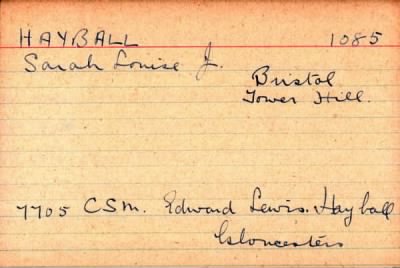 HAYBALL 1085
Sarah Louise J.
Bristol
Tower Hill.
7705 CSM. Edward Lewis. Hayball
Gloucesters